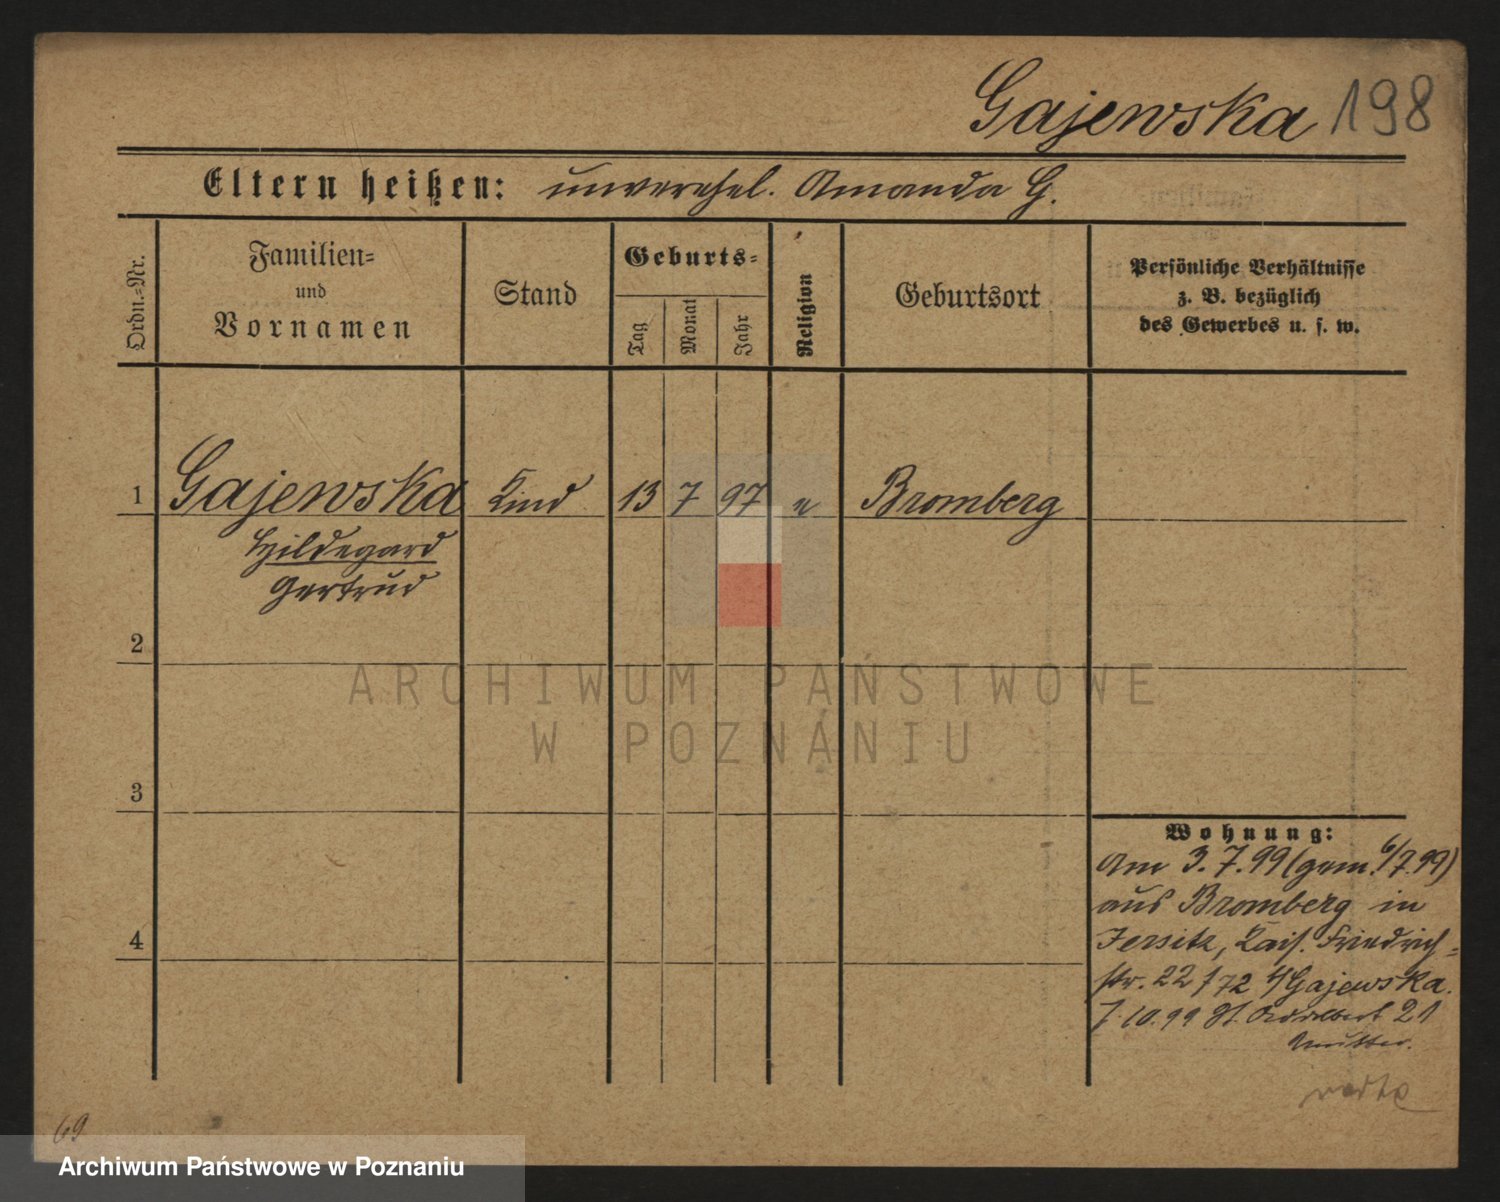 Gajewska 198
Eltern heißen: unverehel. Amanda G.
Ordn.=Nr.
Familien=
und
Vornamen
Stand
Geburts=
Tag
Monat
Jahr
Religion
Geburtsort
Persönliche Verhältnisse
z. B. bezüglich
des Gewerbes u. s. w.
1 Gajewska Kind 13 7 97 Bromberg
Hildegard
Gertrud
2
3
4
Wohnung:
Am 3.7.99 (gem. 6/7.99)
aus Bromberg in
Jersitz, Kais. Friedrich=
str. 22 Gajewska.
7.10.99 St. Adalbert 21
Mutter.
69
ARCHIWUM PAŃSTWOWE
W POZNANIU
Archiwum Państwowe w Poznaniu